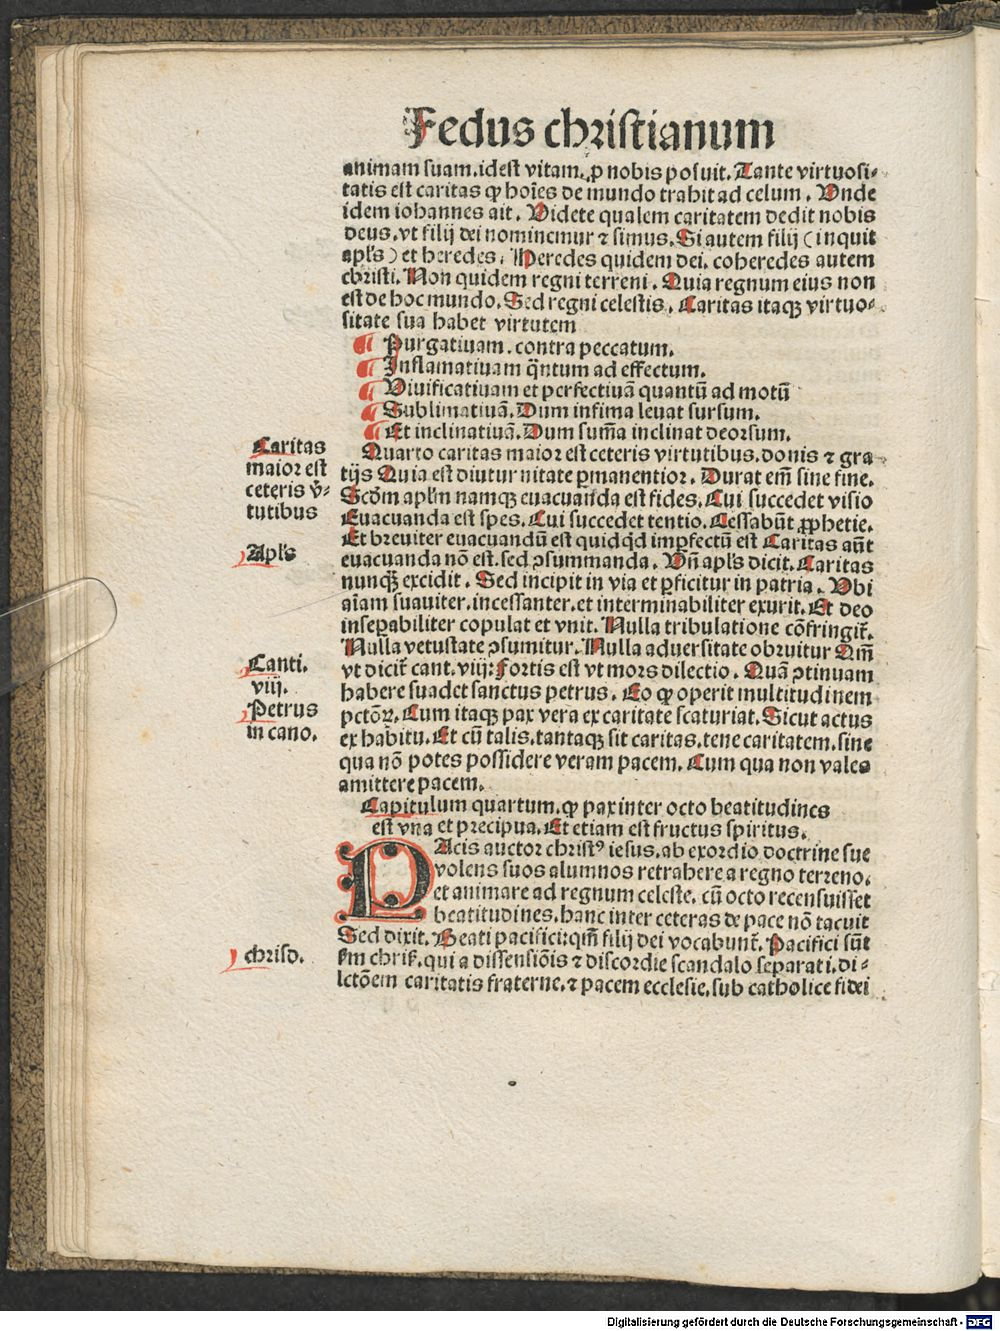 Fedus christianum
animam suam. idest vitam. ꝓ nobis posuit. Tante virtuosi⸗
tatis est caritas ꝙ hoīes de mundo trahit ad celum. Unde
idem iohannes ait. Videte qualem caritatem dedit nobis
deus. vt filij dei nominemur ⁊ simus. Si autem filij (inquit
apl's) et heredes. Heredes quidem dei. coheredes autem
christi. Non quidem regni terreni. Quia regnum eius non
est de hoc mundo. Sed regni celestis. Caritas itaqꝫ virtuo⸗
sitate sua habet virtutem
Purgatiuam. contra peccatum.
Inflamatiuam q̄ntum ad effectum.
Viuificatiuam et perfectiuā quantū ad motū
Sublimatiuā. Dum infima leuat sursum.
Et inclinatiuā. Dum sum̄a inclinat deorsum.
Quarto caritas maior est ceteris virtutibus. donis ⁊ gra⸗
tijs Quia est diuturnitate ꝑmanentior. Durat em̄ sine fine.
Scd̄m apl'm namqꝫ euacuanda est fides. Cui succedet visio
Euacuanda est spes. Cui succedet tentio. Cessabūt ꝓphetie.
Et breuiter euacuandū est quidqd imꝑfectū est Caritas aūt
euacuanda nō est. sed ꝯsummanda. Vn̄ apl's dicit. Caritas
nunqꝫ excidit. Sed incipit in via et ꝑficitur in patria. Vbi
aīam suauiter. incessanter. et interminabiliter exurit. Et deo
insepabiliter copulat et vnit. Nulla tribulatione cōfringit̄.
Nulla vetustate ꝯsumitur. Nulla aduersitate obruitur Qm̄
vt dicit̄ cant. viij: Fortis est vt mors dilectio. Quā ꝯtinuam
habere suadet sanctus petrus. Eo ꝙ operit multitudinem
pctōꝝ. Cum itaqꝫ pax vera ex caritate scaturiat. Sicut actus
ex habitu. Et cū talis. tantaqꝫ sit caritas. tene caritatem. sine
qua nō potes possidere veram pacem. Cum qua non vales
amittere pacem.
Capitulum quartum. ꝙ pax inter octo beatitudines
est vna et precipua. Et etiam est fructus spiritus.
PAcis auctor christꝰ iesus. ab exordio doctrine sue
volens suos alumnos retrahere a regno terreno.
et animare ad regnum celeste. cū octo recensuisset
beatitudines. hanc inter ceteras de pace nō tacuit
Sed dixit. Beati pacifici: qm̄ filij dei vocabunt̄. Pacifici sūt
fm chris̄. qui a dissensiōis ⁊ discordie scandalo separati. di⸗
lctōem caritatis fraterne. ⁊ pacem ecclesie. sub catholice fidei
Caritas
maior est
ceteris v̓⸗
tutibus
Apl's
Canti.
viij.
Petrus
in cano.
chriso.
Digitalisierung gefördert durch die Deutsche Forschungsgemeinschaft - DFG